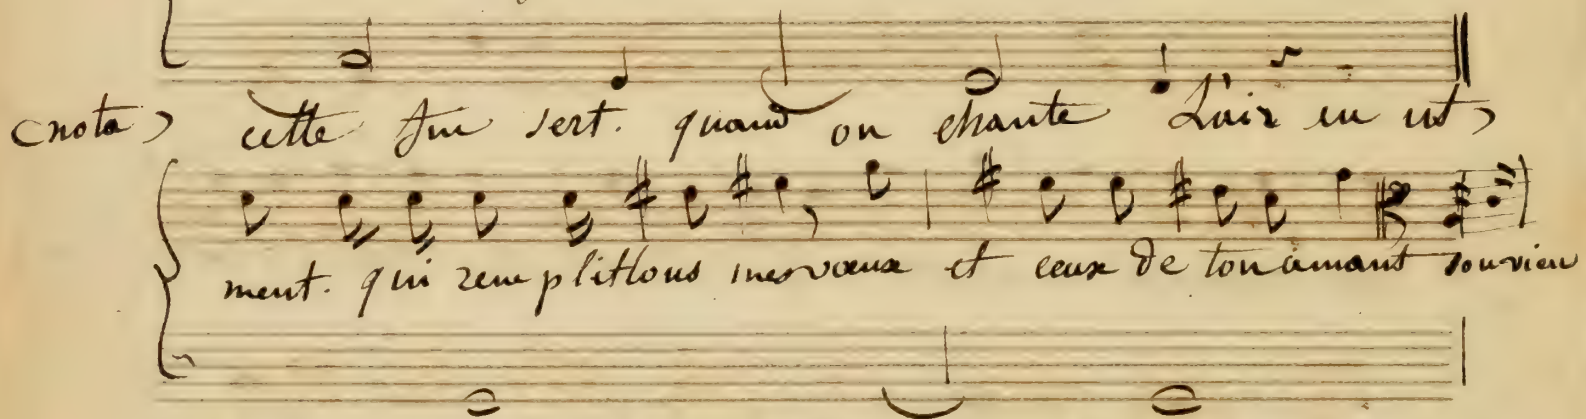 (nota) cette fin sert. quand on chante L'air en ut)
ment. qui remplit tous mes vœux et ceux de ton amant souvien